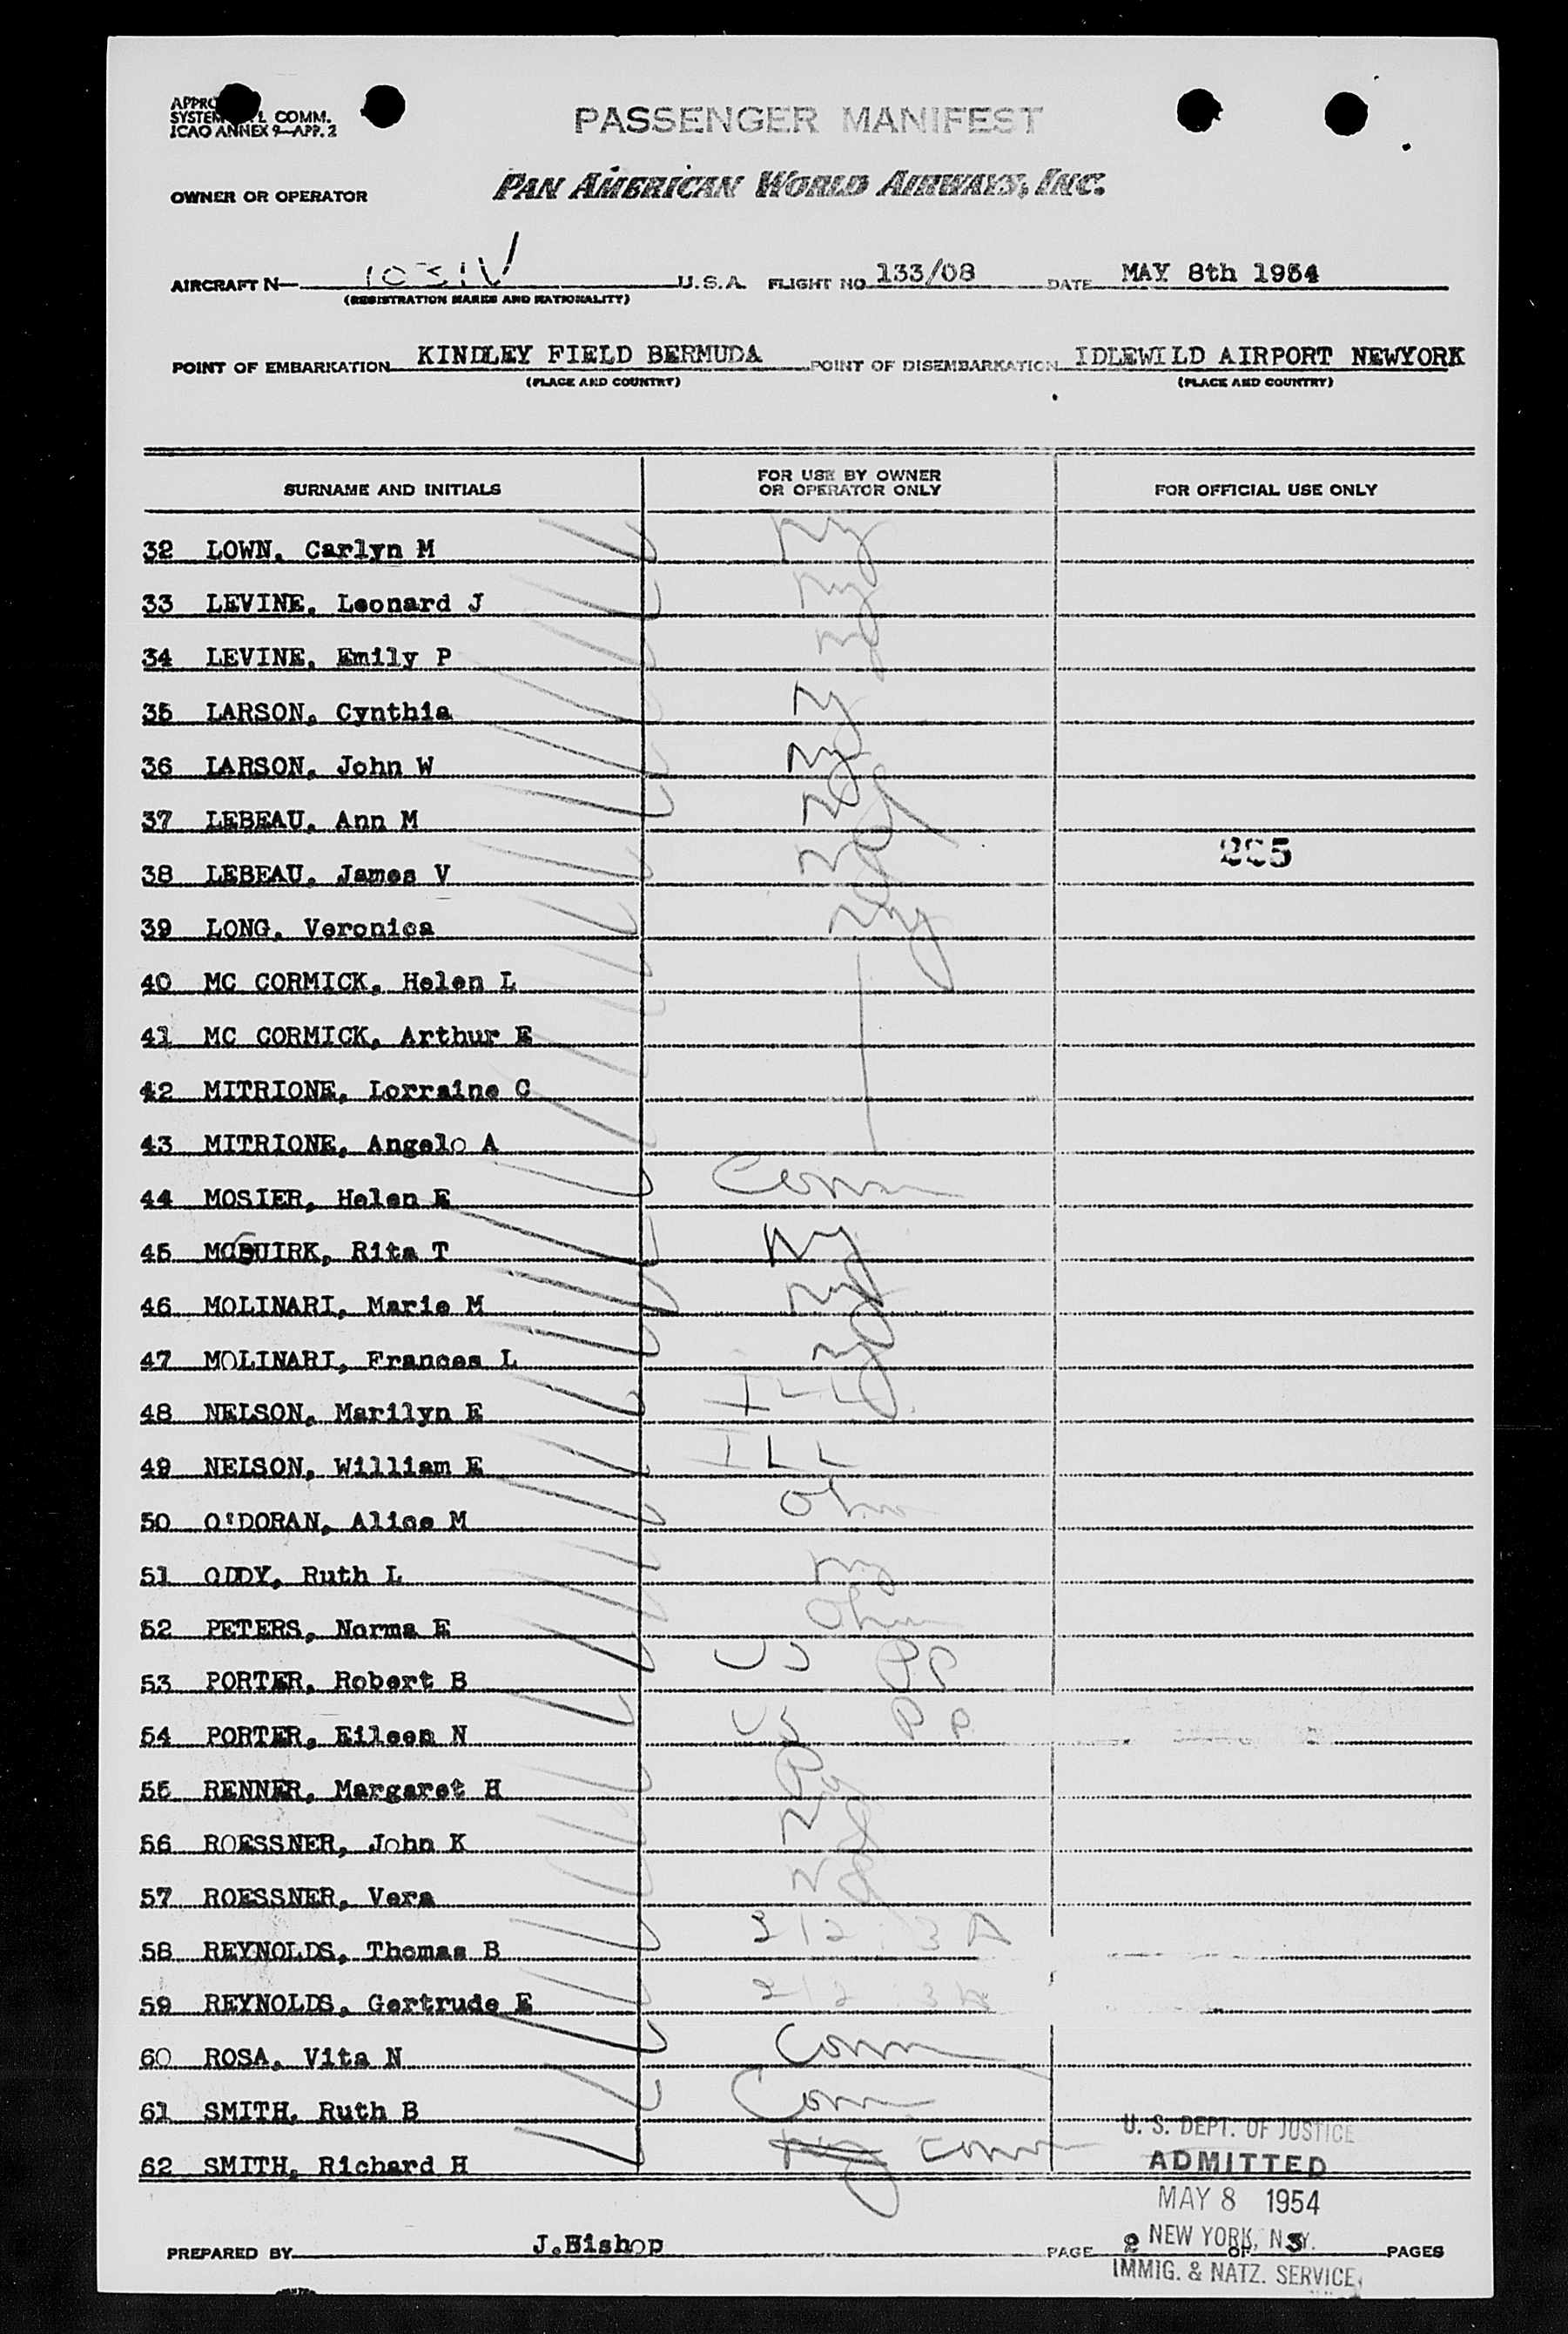 APPRO
SYSTEM L COMM.
ICAO ANNEX 9—APP. 2
PASSENGER MANIFEST
OWNER OR OPERATOR PAN AMERICAN WORLD AIRWAYS, INC.
AIRCRAFT N— 1031V U.S.A. FLIGHT NO. 133/08 DATE MAY 8th 1954
(REGISTRATION MARKS AND NATIONALITY)
POINT OF EMBARKATION KINDLEY FIELD BERMUDA POINT OF DISEMBARKATION IDLEWILD AIRPORT NEWYORK
(PLACE AND COUNTRY) (PLACE AND COUNTRY)
SURNAME AND INITIALS FOR USE BY OWNER OR OPERATOR ONLY FOR OFFICIAL USE ONLY
32 LOWN, Carlyn M Ny
33 LEVINE, Leonard J Ny
34 LEVINE, Emily P Ny
35 LARSON, Cynthia Ny
36 LARSON, John W Ny
37 LEBEAU, Ann M NY
38 LEBEAU, James V NY 265
39 LONG, Veronica Ny
40 MC CORMICK, Helen L
41 MC CORMICK, Arthur E
42 MITRIONE, Lorraine C
43 MITRIONE, Angelo A
44 MOSIER, Helen E Conn
45 MCGUIRK, Rita T Ny
46 MOLINARI, Marie M Ny
47 MOLINARI, Frances L Ny
48 NELSON, Marilyn E ILL
49 NELSON, William E ILL
50 O'DORAN, Alice M Ohio
51 ODDY, Ruth L Ny
52 PETERS, Norma E Ohio
53 PORTER, Robert B US PP
54 PORTER, Eileen N US PP
55 RENNER, Margaret H Pa
56 ROESSNER, John K NJ
57 ROESSNER, Vera NJ
58 REYNOLDS, Thomas B 212.3A
59 REYNOLDS, Gertrude E 212 3A
60 ROSA, Vita N Conn
61 SMITH, Ruth B Conn
62 SMITH, Richard H Ny Conn
U. S. DEPT. OF JUSTICE
ADMITTED
MAY 8 1954
NEW YORK, N. Y.
IMMIG. & NATZ. SERVICE
PREPARED BY J.Bishop PAGE 2 OF 3 PAGES